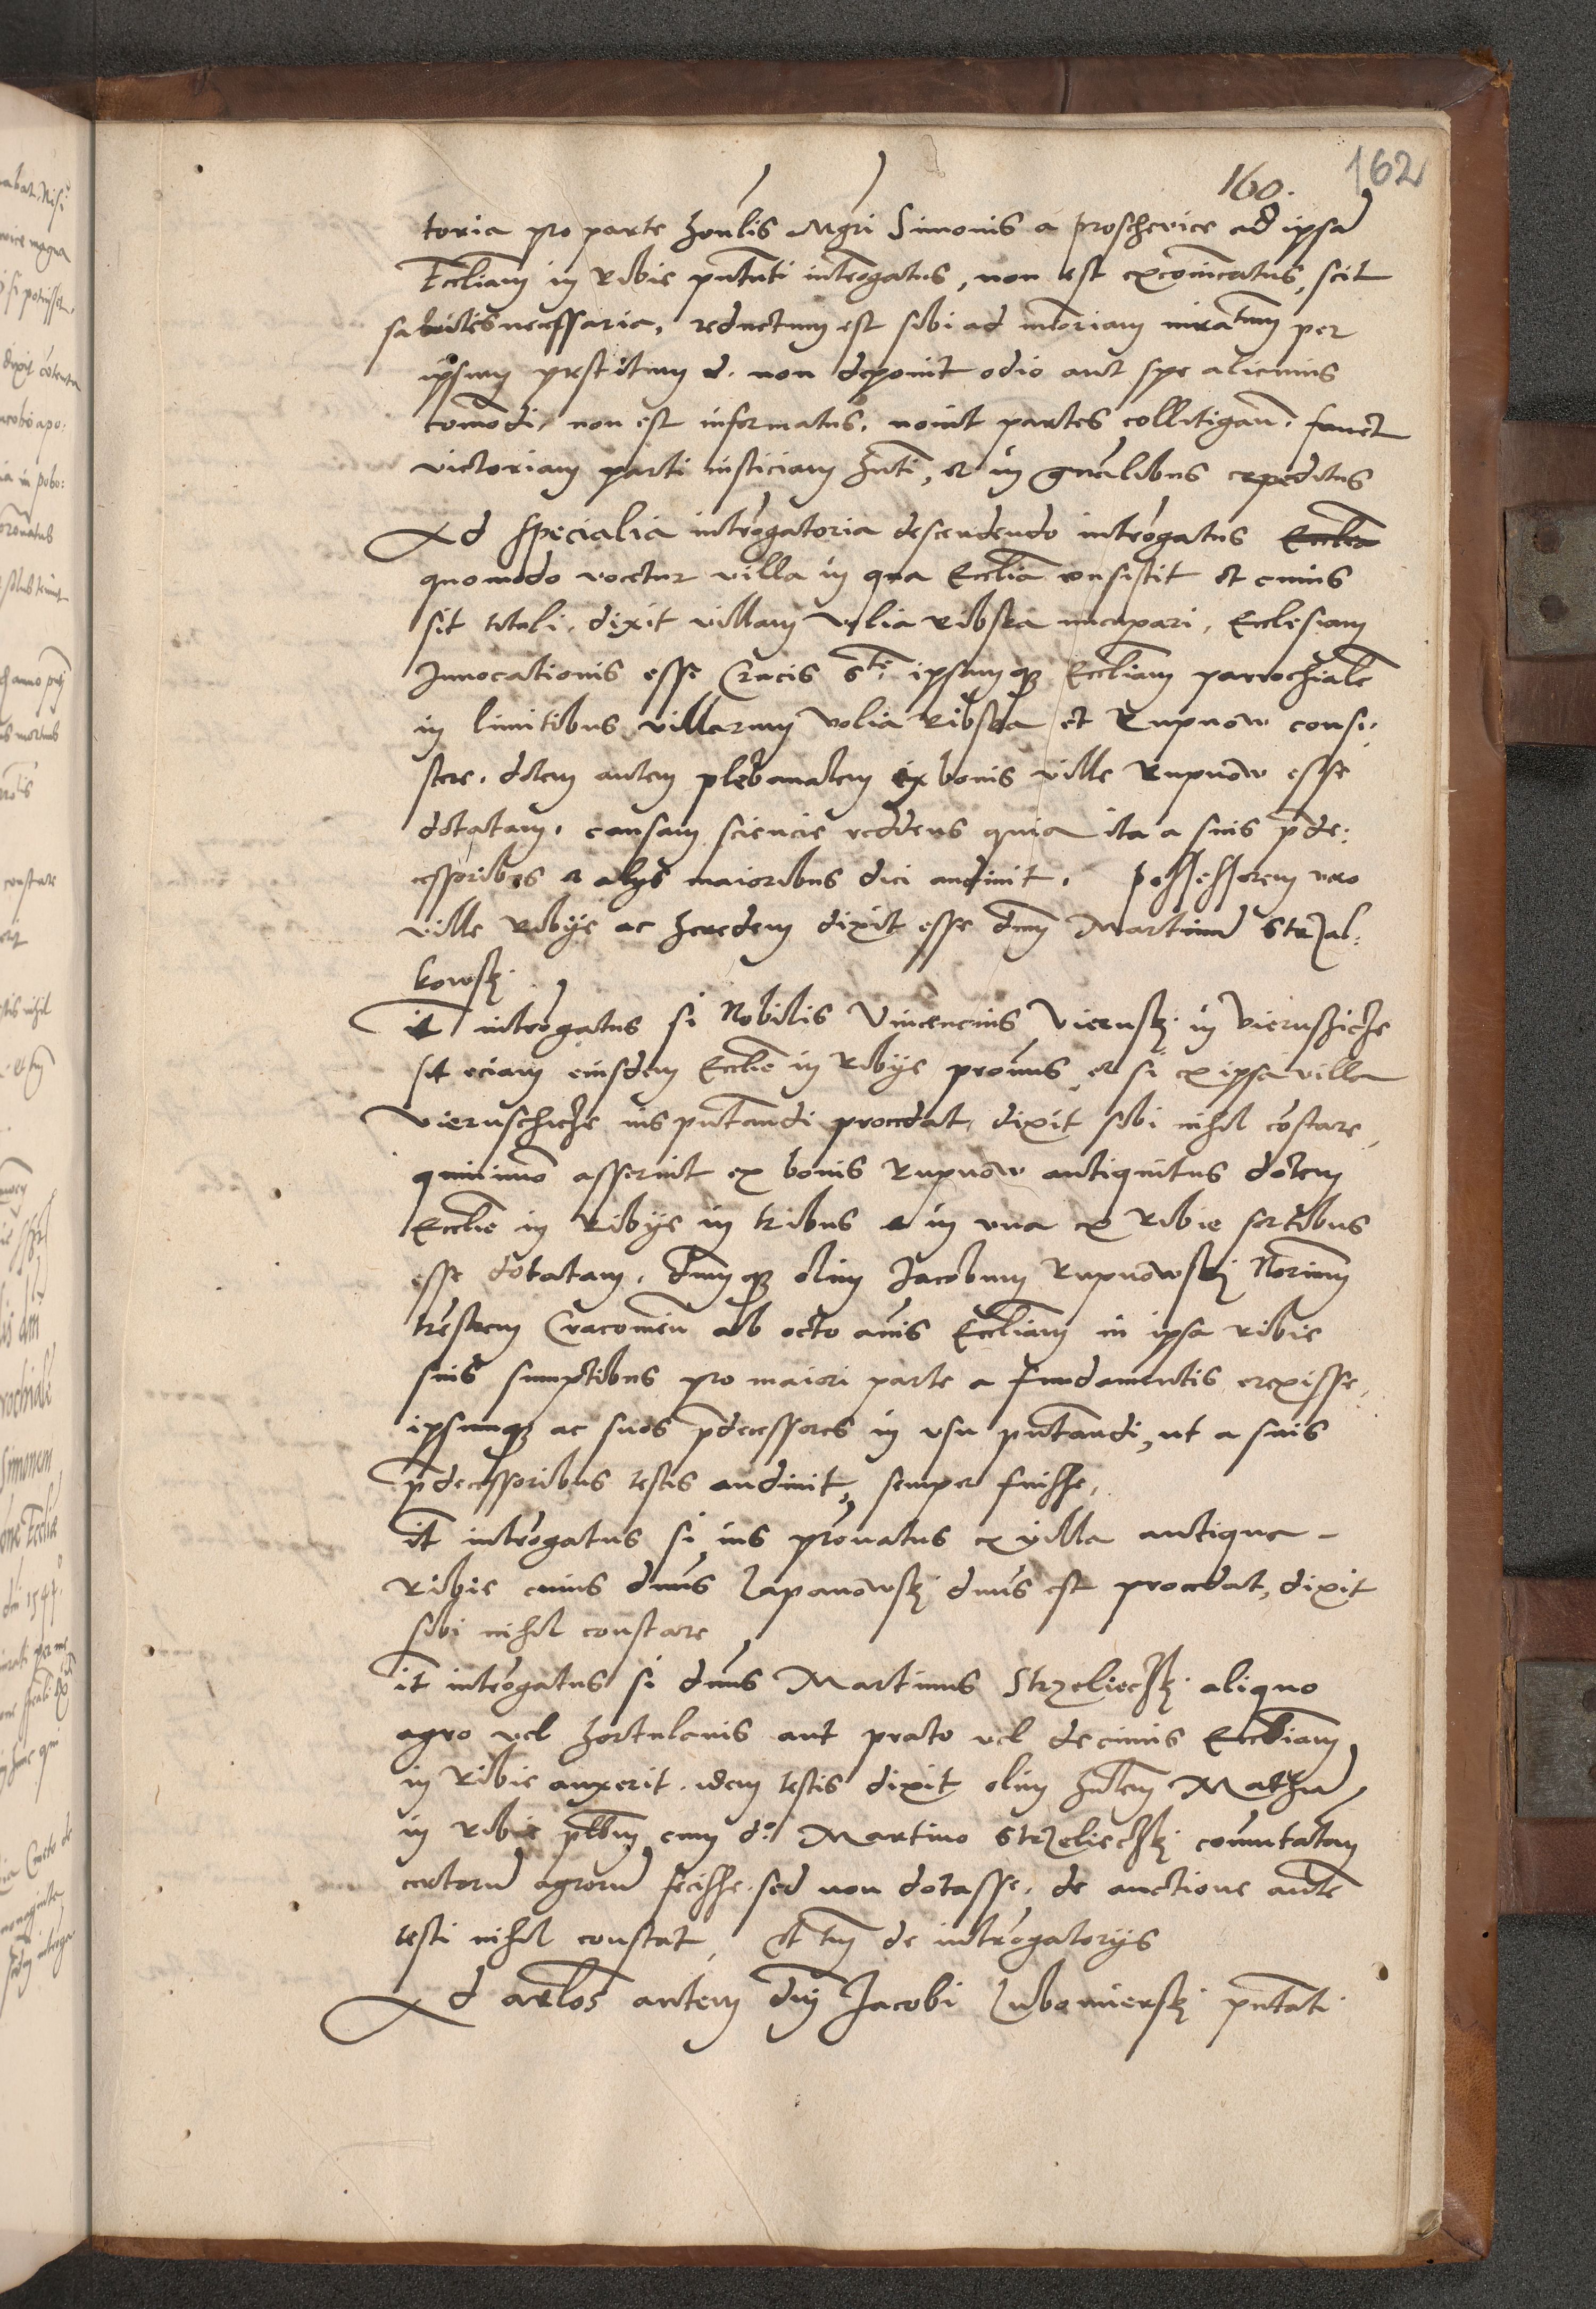 160. 162
toria pro parte honlis Mgri Simonis a proschevice ad ipsam
Eccliam in Ribie pntati introgatus, non est excoincatus, scit
necessaria, reductum est sibi ad memoriam iuratum per
ipsum prstitum d. non deponit odio aut spe alicuius
comodi, non est informatus, novit partes collitigan. favet
victoriam parti iusticiam hnti, et in gnalibus expeditus
Ad specialia introgatoria descendendo introgatus
quomodo vocetur villa in qua Ecclia consistit et cuius
sit tituli, dixit villam Volia Ribska nucupari, Ecclesiam
Invocationis esse Crucis Sti ipsamq Eccliam parrochiale
in limitibus villarum Volia Ribska et Rupnow consi:
stere. dotem autem plebanalem ex bonis ville Rupnow esse
dotatam, causam sciencie reddens quia ita a suis pde:
cessoribus a alijs maioribus dici audiuit. possessorem vero
ville Ribije ac heredem dixit esse dnm Martinu Strzal:
kowskj
it introgatus si Nobilis Vincencius Vieruskj in Vieruschicze
sit eciam eiusdem Ecclie in Ribije pronus et si ex ipsa villa
Vieruschicze ius pntandi procedat, dixit sibi nihil costare,
quinimo asseruit ex bonis Rupnow antiquitus dotem
Ecclie in Ribije in tribus a in una ex Ribie sortibus
esse dotatam, dnmq olim Jacobum Rupnowskj Norium
trestrem Cracovien ab octo annis Eccliam in ipsa Ribie
suis sumptibus pro maiori parte a fundamentis erexisse,
ipsumq ac suos pdecessores in usu pntandi, ut a suis
pdecessoribus testis audiuit, semper fuisse,
it introgatus si ius pronatus ex villa antiqua
Ribie cuius dnus Lapanowskj dnus est procedat, dixit
sibi nihil constare
it introgatus si dnus Martinus Strzelieczskj aliquo
agro vel hortulanis aut prato vel decimis Eccliam
in Ribie auxerit. idem testis dixit olim hnlem Mathia
in Ribie plbnm cum do Martino Strzelieczskj comutatam
certorum agrorum fecisse, sed non dotasse, de auctione aute
testi nihil constat, Et tm de introgatorijs
Ad arlos autem dnj Jacobi Lubomierskj pntati